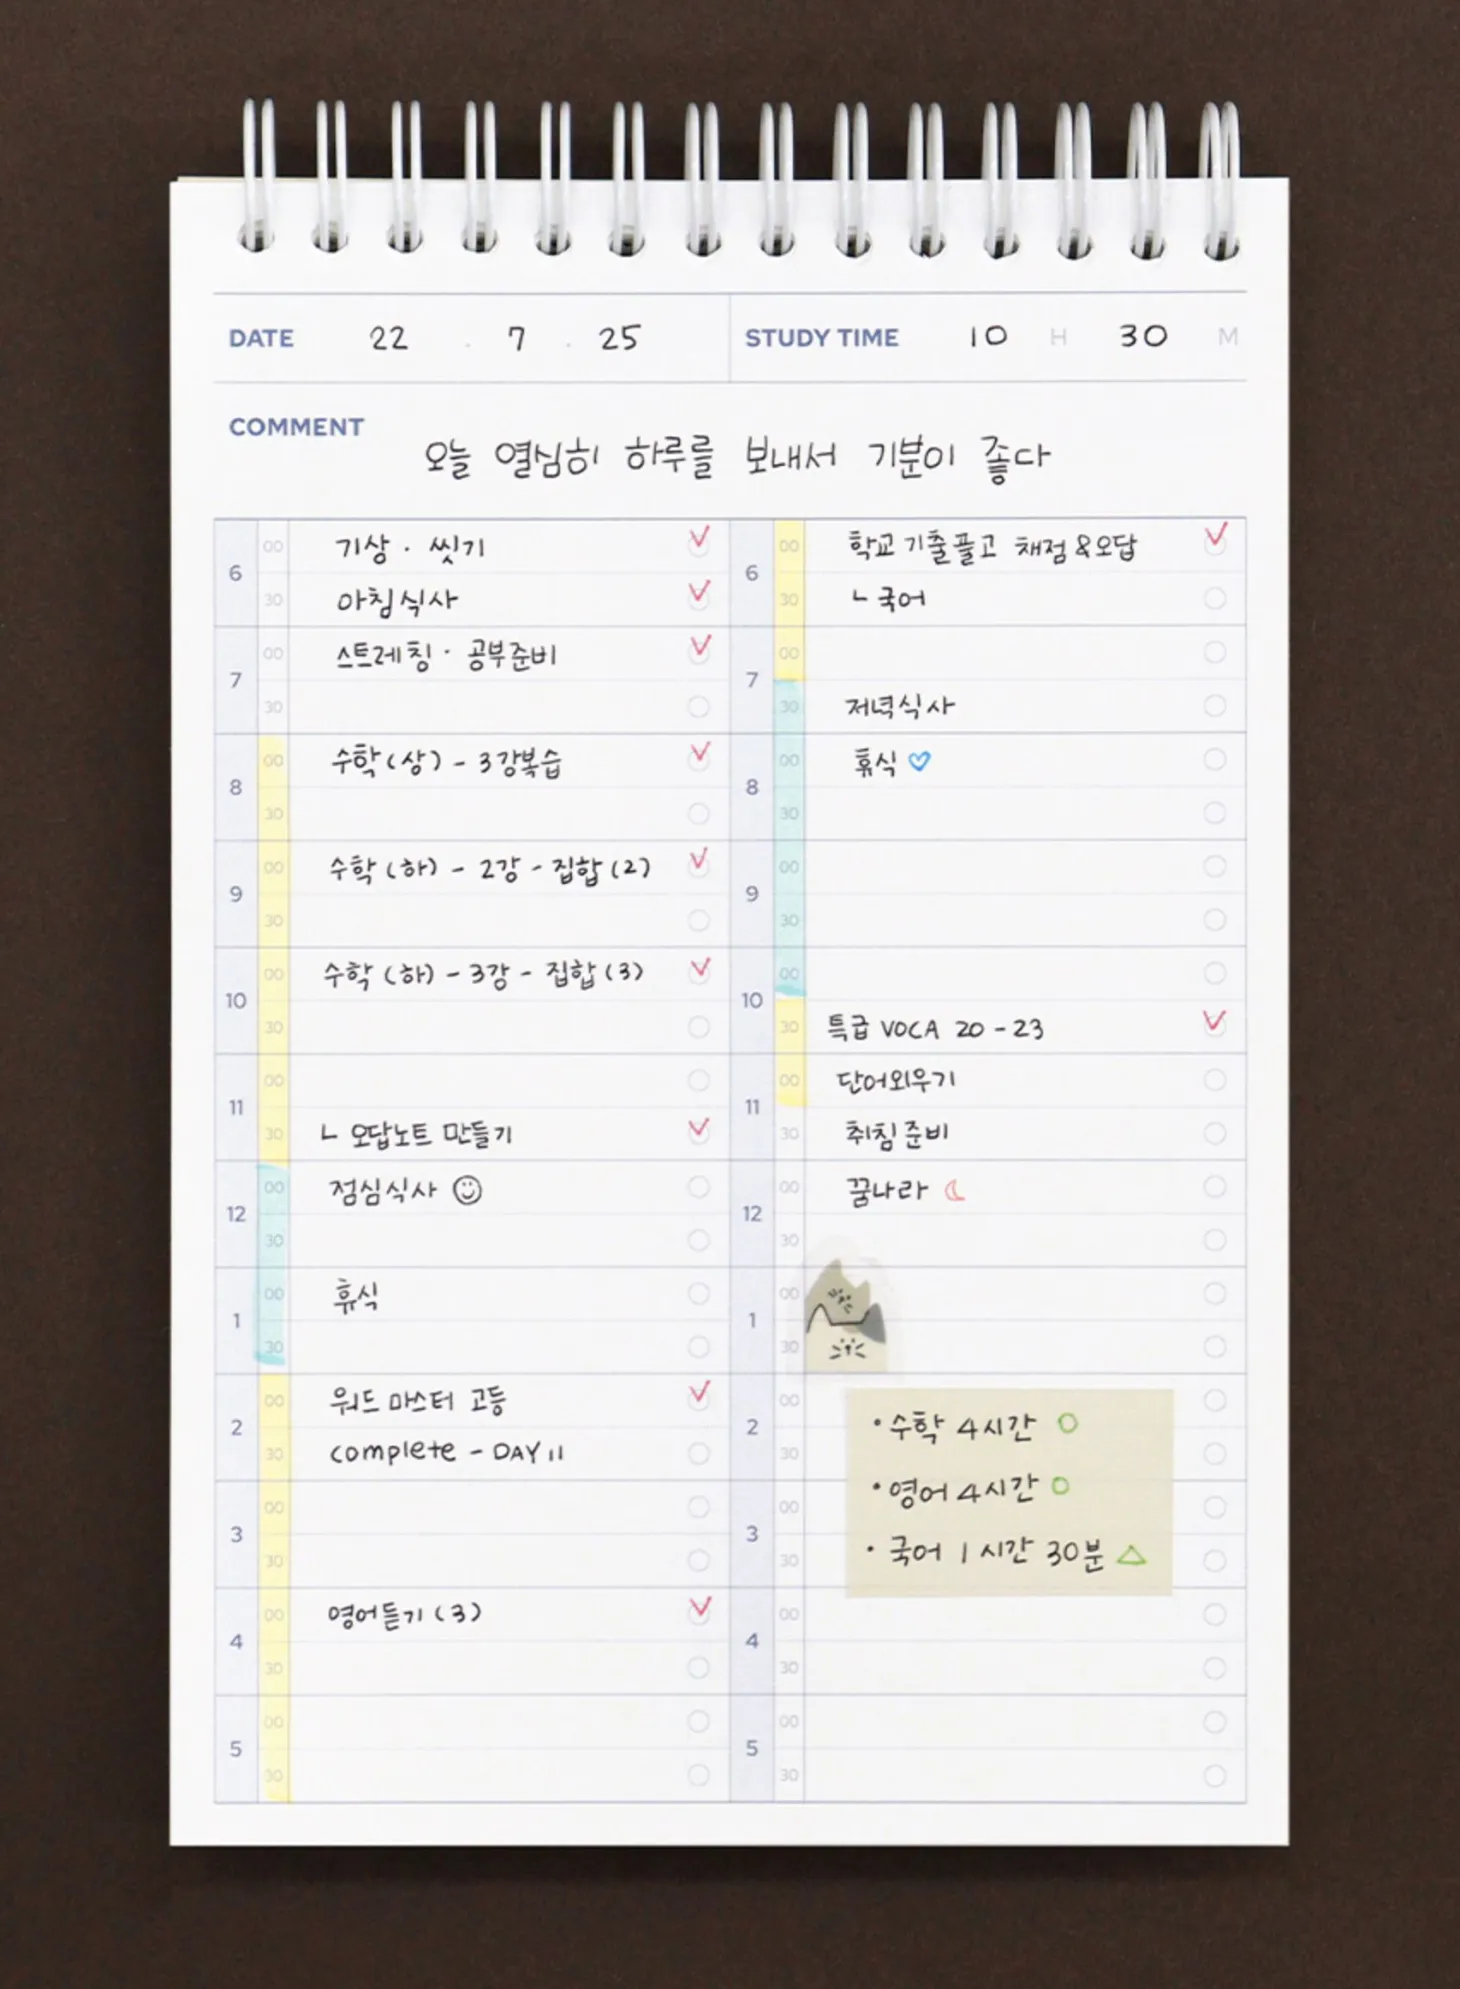 DATE 22 . 7 . 25 STUDY TIME 10 H 30 M
COMMENT
오늘 열심히 하루를 보내서 기분이 좋다
6 00 기상 · 씻기
30 아침식사
7 00 스트레칭 · 공부준비
30
8 00 수학(상) - 3강복습
30
9 00 수학(하) - 2강 - 집합(2)
30
10 00 수학(하) - 3강 - 집합(3)
30
11 00
30 ㄴ 오답노트 만들기
12 00 점심식사
30
1 00 휴식
30
2 00 워드마스터 고등
30 complete - DAY 11
3 00
30
4 00 영어듣기(3)
30
5 00
30
6 00 학교기출풀고 채점&오답
30 ㄴ국어
7 00
30 저녁식사
8 00 휴식
30
9 00
30
10 00
30 특급 VOCA 20 - 23
11 00 단어외우기
30 취침준비
12 00 꿈나라
30
1 00
30
2 00
30
3 00
30
4 00
30
5 00
30
• 수학 4시간
• 영어 4시간
• 국어 1시간 30분